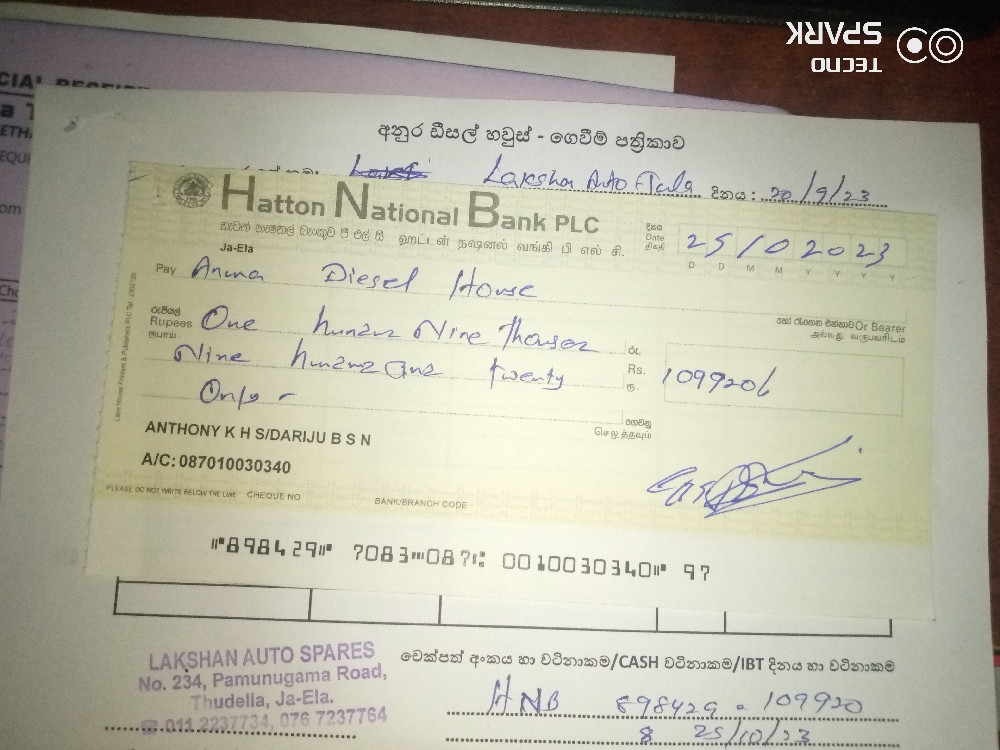 TECNO
SPARK
අනුර ඩීසල් හවුස් - ගෙවීම් පත්‍රිකාව
Lakshan Auto දිනය : 20/9/23
Hatton National Bank PLC
හැටන් නැෂනල් බැංකුව පී එල් සී ஹட்டன் நஷனல் வங்கி பி எல் சி.
Ja-Ela
දිනය
Date
திகதி
25/02023
D D M M Y Y Y Y
Pay Anura Diesel House
හෝ රැගෙන එන්නාට Or Bearer
அல்லது வருபவரிடம்
රුපියල්
Rupees One hundred Nine Thousand
ரூபாய்
Nine hundred and twenty
Only -
රු.
Rs. 109920/
ரூ.
ගෙවනු
செலுத்தவும்
ANTHONY K H S/DARIJU B S N
A/C: 087010030340
PLEASE DO NOT WRITE BELOW THE LINE CHEQUE NO BANK/BRANCH CODE
⑈898429⑈ 7083⑉087⑆ 0010030340⑈ 97
LAKSHAN AUTO SPARES
No. 234, Pamunugama Road,
Thudella, Ja-Ela.
☎ 011 2237734, 076 7237764
චෙක්පත් අංකය හා වටිනාකම/CASH වටිනාකම/IBT දිනය හා වටිනාකම
HNB 898429 = 109920
25/10/23